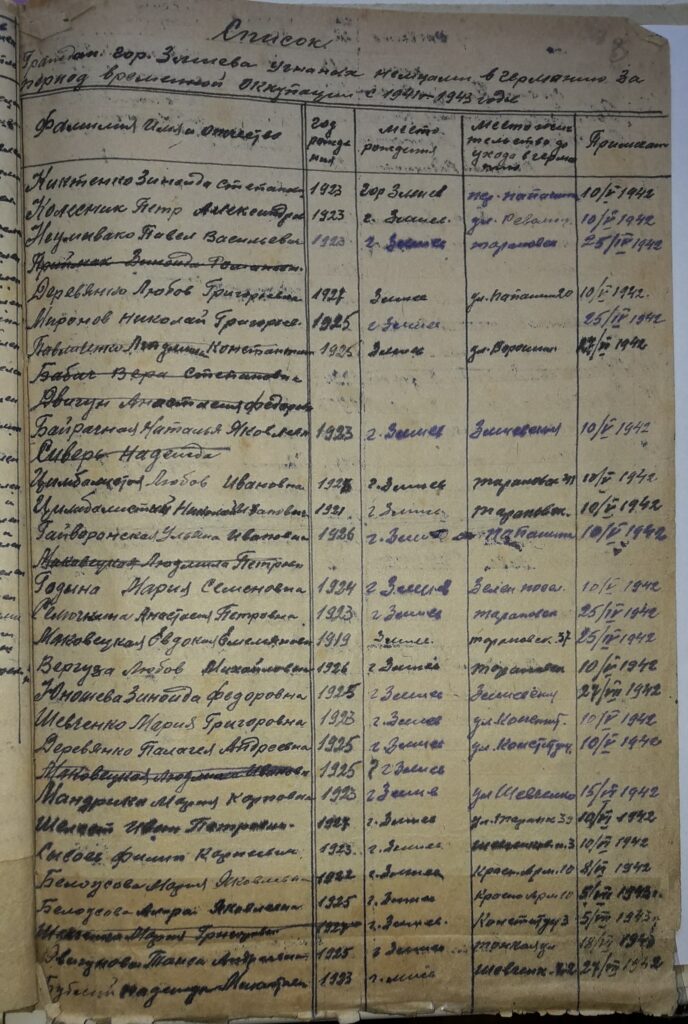 Список
8
Граждан гор. Змиева угнаных немцами в германию за
период временной оккупации с 1941-1943 годы
Фамилия Имя и отчество год рождения место рождения место жительства до ухода в герма Примечан
Никтенко Зинаида Степанов 1923 гор Змиев пер. папаши 10/V 1942
Колесник Петр Александров 1923 г. Змиев 10/V 1942
Неумывако Павел Васильеви 1923 г. Змиев тарановск 25/IV 1942
Приймак Зинаида Романовн.
Деревянко Любов Григорьевна 1927 Змиев ул. Папашин 20 10/V 1942
Миронов Николай Григорьев. 1925 г Змиев 25/IV 1942
Павленко Людмила Константин 1925 Змиев ул. Ворошил. 1942
Бабач Вера Степановна
Двигун Анастасия федоров
Байрачная Наталья Яковлевн 1923 г. Змиев Змиевская 10/V 1942
Сиверь Надежда
Цимбалистая Любов Ивановна г. Змиев тарановск 10/V 1942
Цимбалистый Николай Иванович 1921 г. Змиев тарановск. 10/V 1942
Гайворонская Ульяна Ивановна 1926 г. Змиев Папашин 10/V 1942
Маковецкая Людмила Петровн
Година Мария Семеновна 1924 г Змиев Зелен посел. 10/V 1942
Анастасия Петровна 1923 г Змиев тарановск 25/IV 1942
Маковецкая Евдокия Емеляновн 1919 Змиев. тарановск. 37 25/IV 1942
Вергуза Любов Михайловна 1926 г Змиев тарановск 10/V 1942
Юношева Зинаида федоровна 1925 г Змиев Змиевская 1942
Шевченко Мария Григоровна 1923 г Змиев 10/V 1942
Деревянко Палагея Андреевна 1925 г Змиев ул. Конституц. 10/V 1942
Маковецкая Людмила Иванов 1925 г Змиев
Мандрыка Мария Карповна 1923 г Змиев ул Шевченко 1942
Шелест Иван Петрович. 1927 г. Змиев 10/V 1942
Сысоев филип Карпович. 1923 г. Змиев 10/V 1942
Белоусова Мария Яковлевна 1922 г. Змиев Красн Арм. 10 1942
Белоусова Яковлевна 1925 г. Змиев Красно Арм 10 1943
Шевченко Мария Григоровн г. Змиев. Конституц 3 1943
Двигунова Таиса Андреевна 1925 г Змиев 1943
Надежда Никитовн 1923 Шевченк 1942